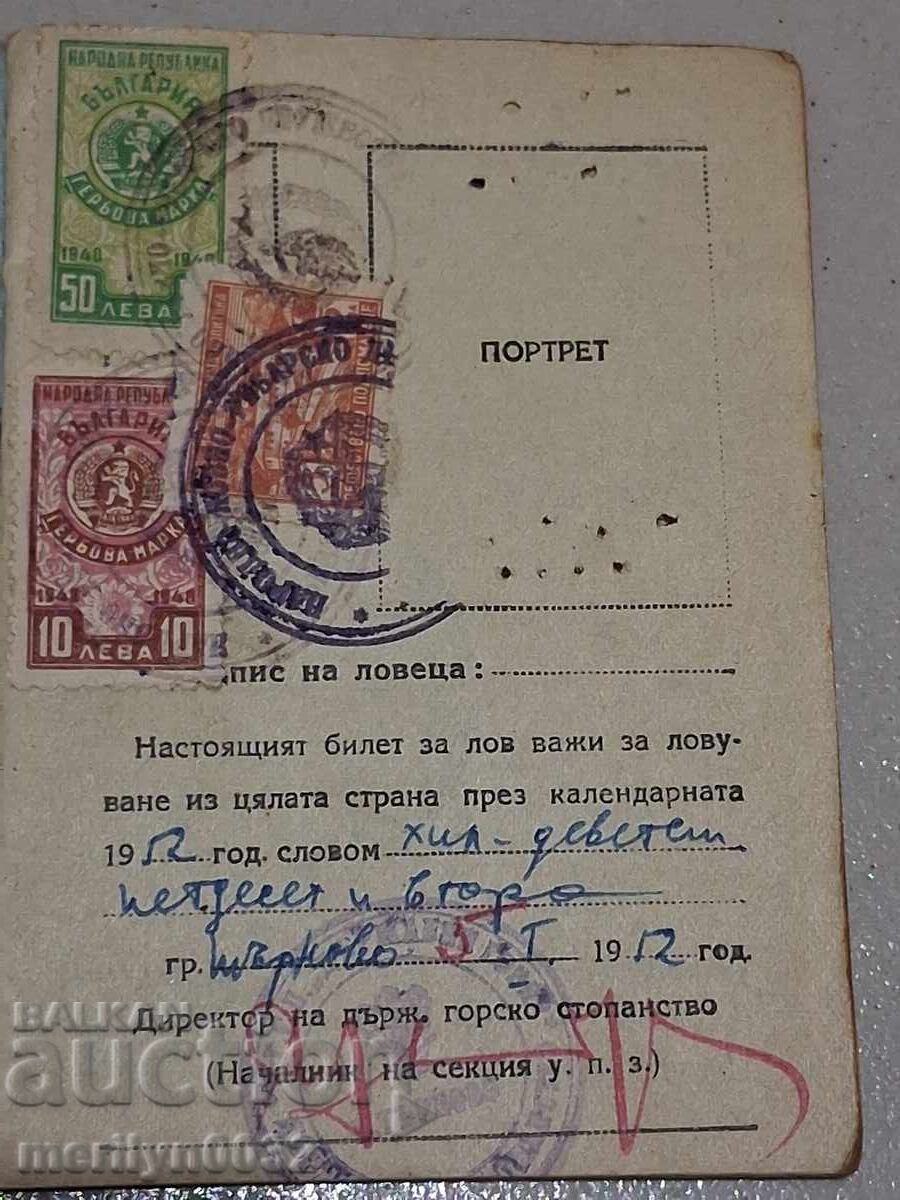 НАРОДНА РЕПУБЛИКА
БЪЛГАРИЯ
ГЕРБОВА МАРКА
1948 1948
50 ЛЕВА
НАРОДНА РЕПУБ
БЪЛГАРИЯ
ГЕРБОВА МАРКА
1948 1948
10 ЛЕВА 10
НАРОДНА ЛОВНО-РИБАРСКО
ПОРТРЕТ
пис на ловеца:
Настоящият билет за лов важи за лову-
ване из цялата страна през календарната
1952 год. словом хил-деветст
петдесет и втора
гр. Търново 5-I 1952 год.
Директор на държ. горско стопанство
(Началник на секция у. п. з.)
BALKAN
auction
merilynuu52